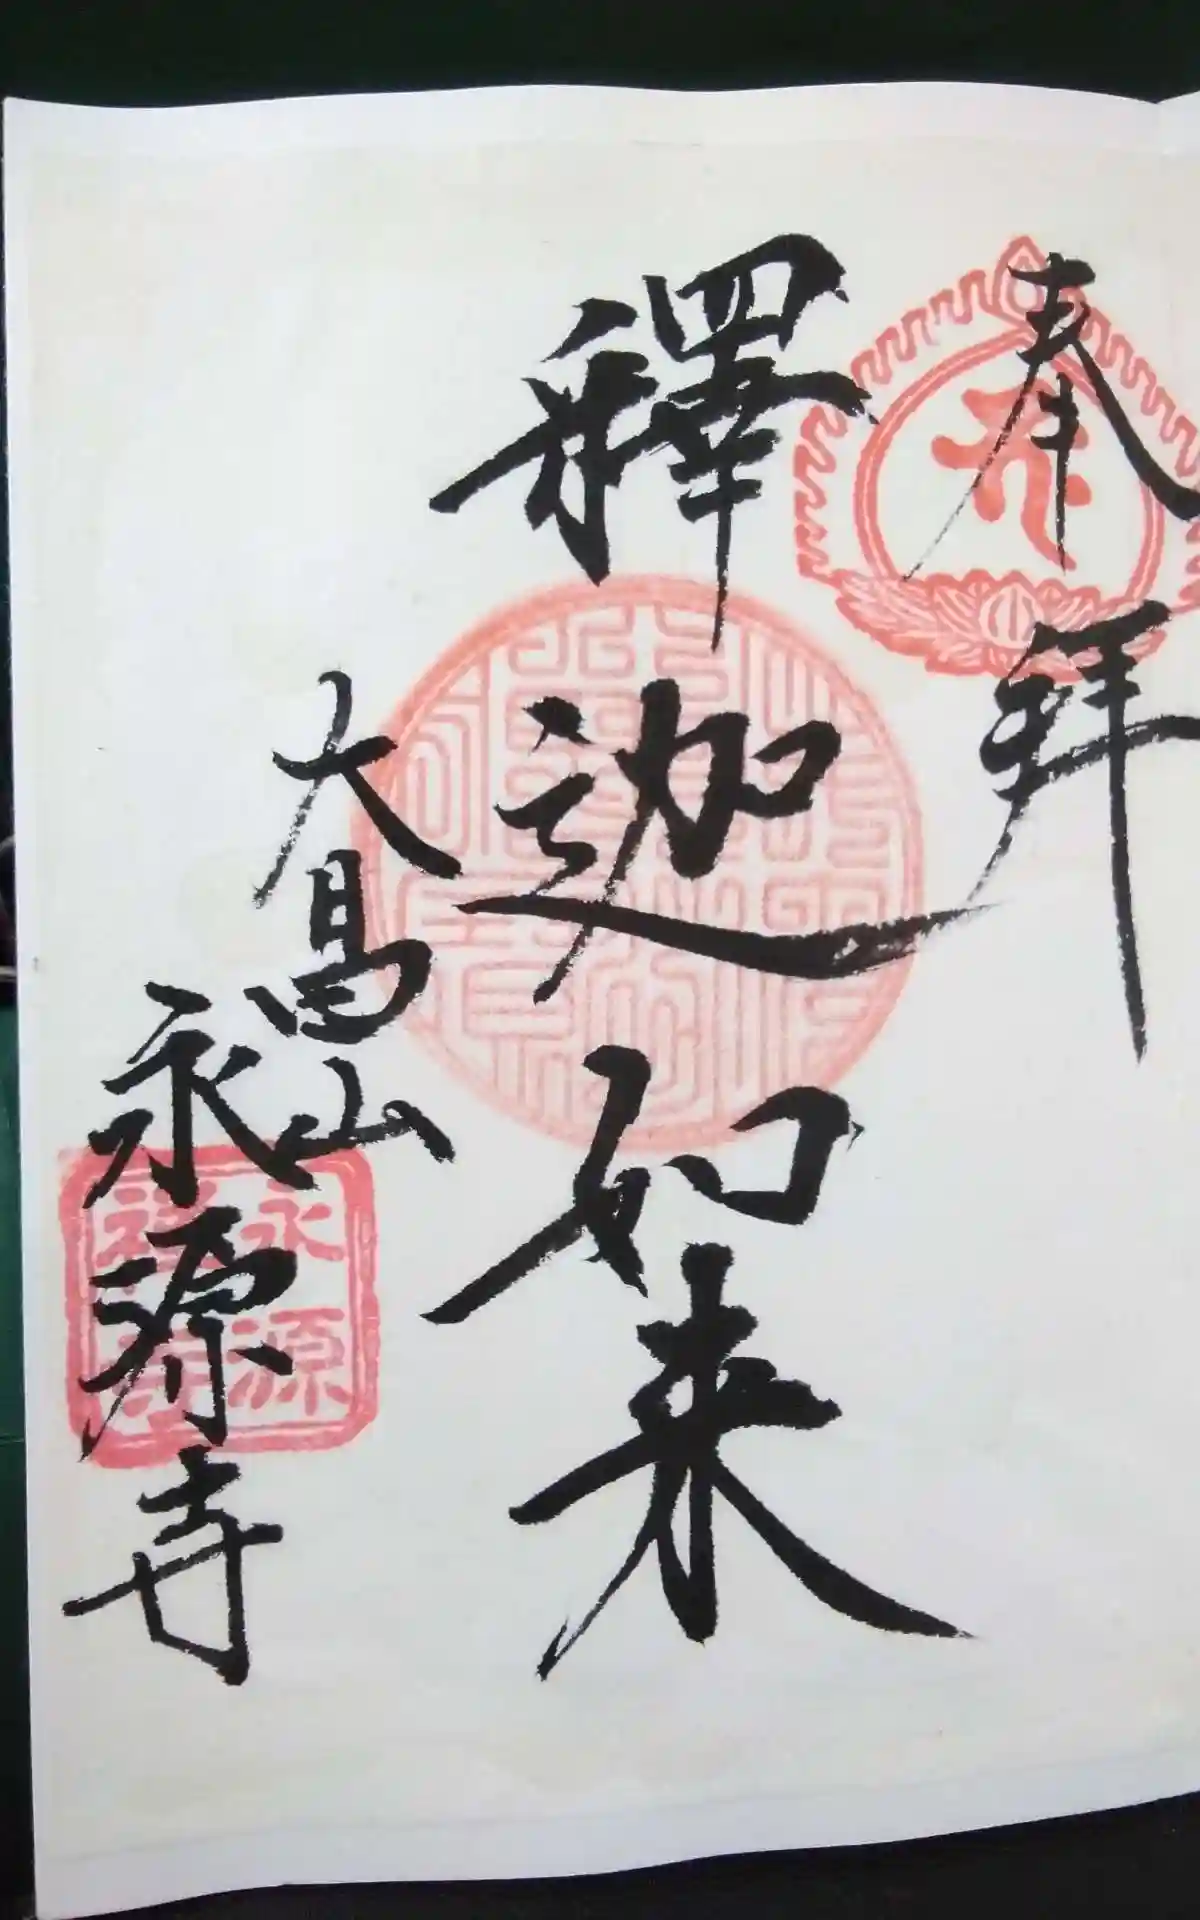 奉拜
釋迦如来
大髙山
永源寺
永源
禅寺